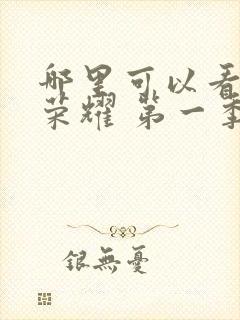 哪里可以看
荣耀 第一季
银無憂